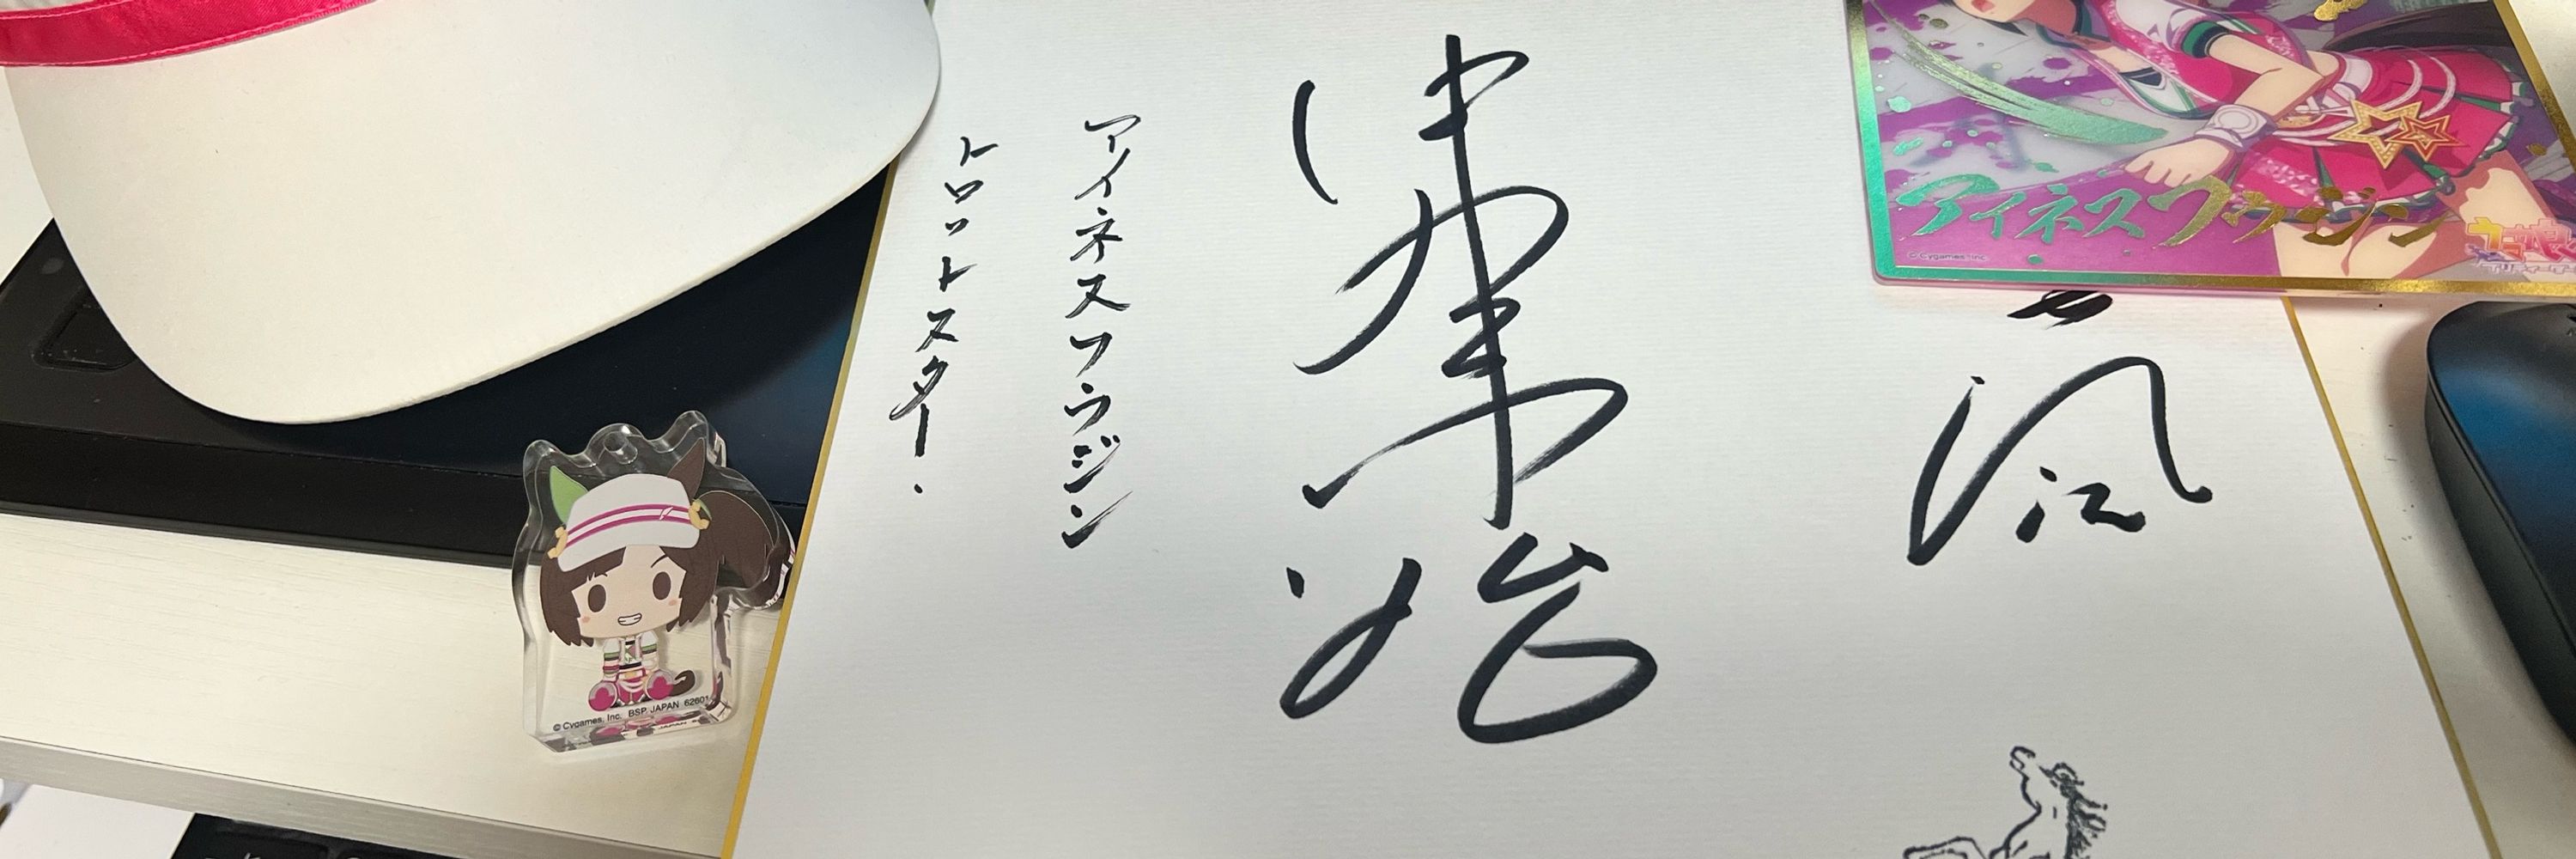 アイネスフウジン
© Cygames, Inc.
ウマ娘
風
中野栄治
アイネスフウジン
トロットスター.
© Cygames, Inc. BSP JAPAN 62601